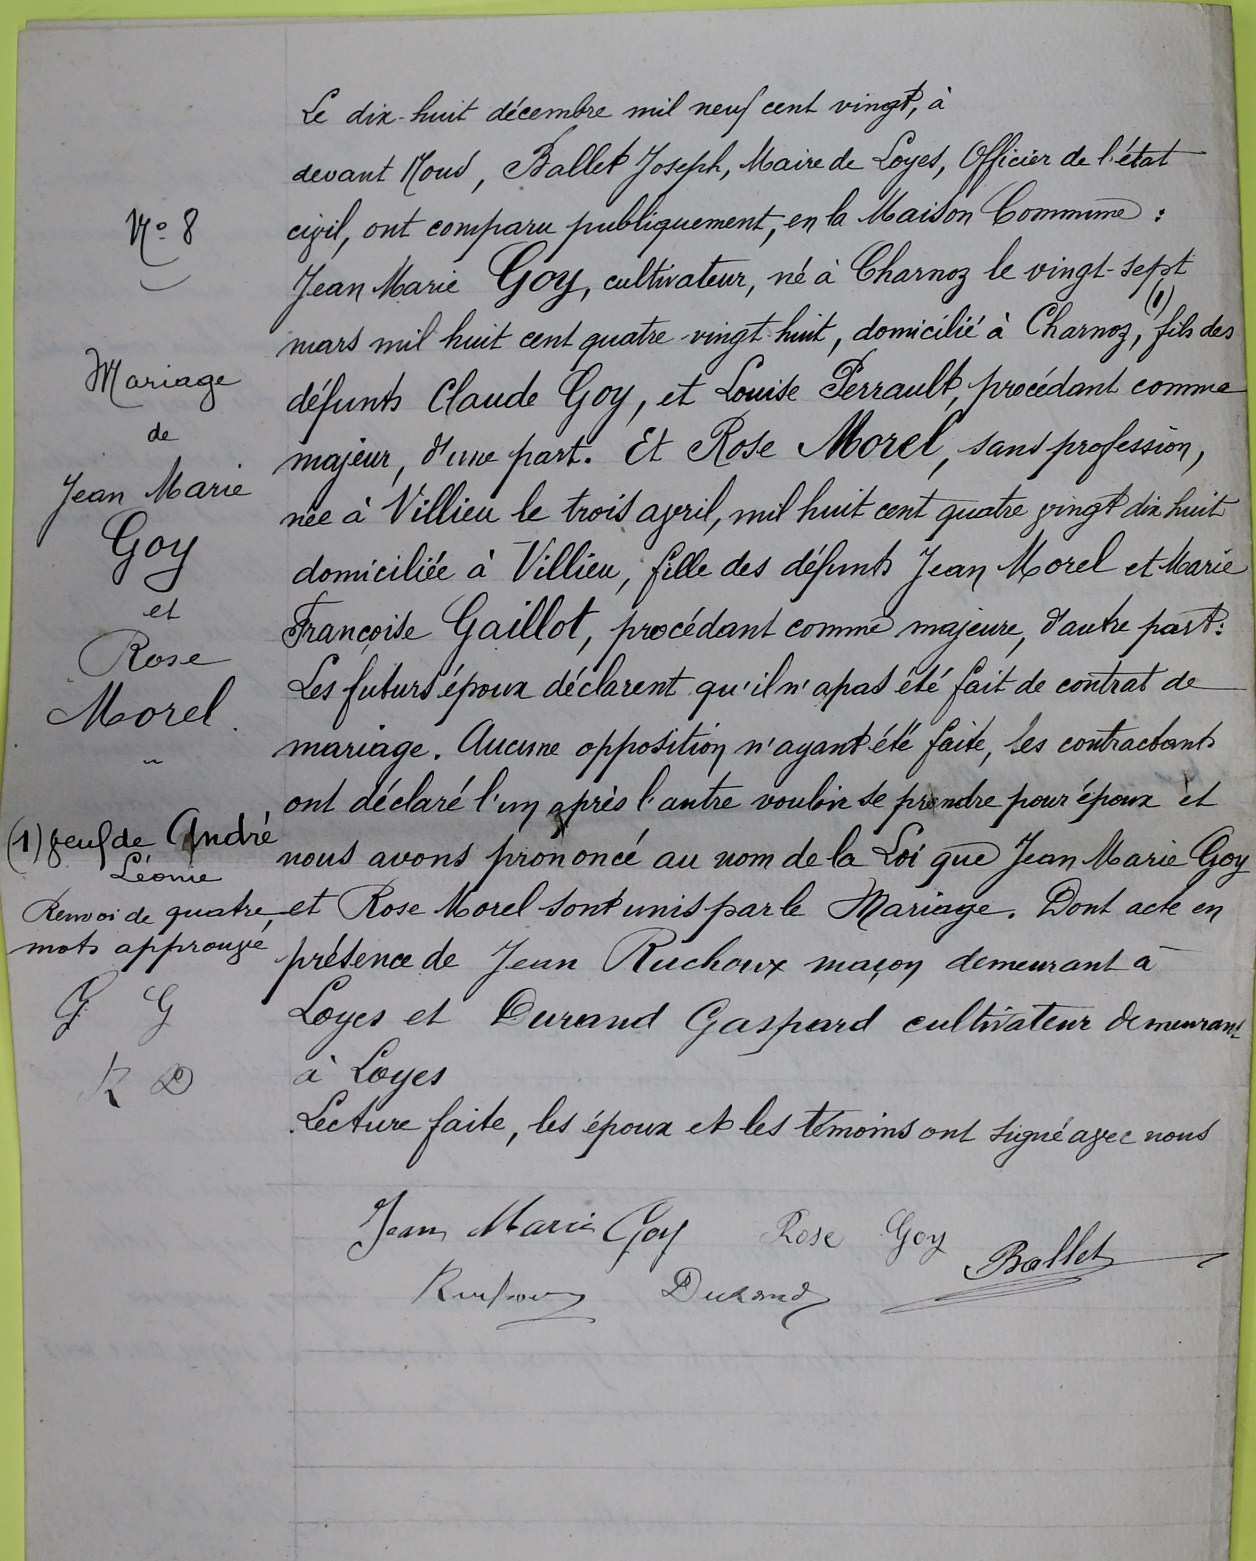 N° 8
Mariage
de
Jean Marie
Goy
et
Rose
Morel
"
(1) veuf de André
Léonie
Renvoi de quatre
mots approuvé
G G
R D
Le dix-huit décembre mil neuf cent vingt, à
devant Nous, Ballet Joseph, Maire de Loyes, Officier de l'état
civil, ont comparu publiquement, en la Maison Commune :
Jean Marie Goy, cultivateur, né à Charnoz le vingt-sept
mars mil huit cent quatre-vingt-huit, domicilié à Charnoz, (1) fils des
défunts Claude Goy, et Louise Perrault, procédant comme
majeur, d'une part. Et Rose Morel, sans profession,
née à Villieu le trois avril, mil huit cent quatre vingt dix huit
domiciliée à Villieu, fille des défunts Jean Morel et Marie
Françoise Gaillot, procédant comme majeure, d'autre part:
Les futurs époux déclarent qu'il n'a pas été fait de contrat de
mariage. Aucune opposition n'ayant été faite, les contractants
ont déclaré l'un après l'autre vouloir se prendre pour époux et
nous avons prononcé au nom de la Loi que Jean Marie Goy
et Rose Morel sont unis par le Mariage. Dont acte en
présence de Jean Ruchoux maçon demeurant à
Loyes et Durand Gaspard cultivateur demeurant
à Loyes
Lecture faite, les époux et les témoins ont signé avec nous
Jean Marie Goy Rose Goy Ballet
Durand